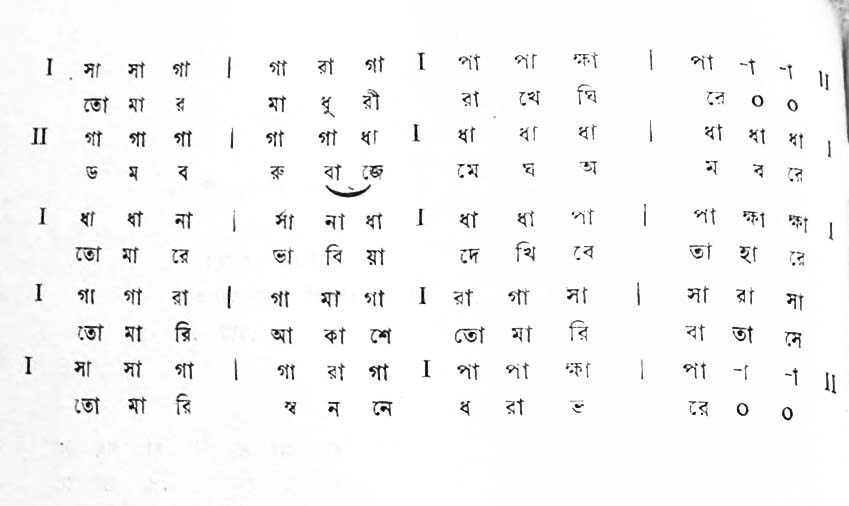 I সা সা গা | গা রা গা I পা পা ক্ষা | পা -া -া II
তো মা র মা ধু রী রা খে ঘি রে ০ ০
II গা গা গা | গা গা ধা I ধা ধা ধা | ধা ধা ধা I
ড ম ব রু বা জে মে ঘ অ ম ব রে
I ধা ধা না | র্সা না ধা I ধা ধা পা | পা ক্ষা ক্ষা I
তো মা রে ভা বি য়া দে খি বে তা হা রে
I গা গা রা | গা মা গা I রা গা সা | সা রা সা
তো মা রি আ কা শে তো মা রি বা তা সে
I সা সা গা | গা রা গা I পা পা ক্ষা | পা -া -া II
তো মা রি স্ব ন নে ধ রা ভ রে ০ ০